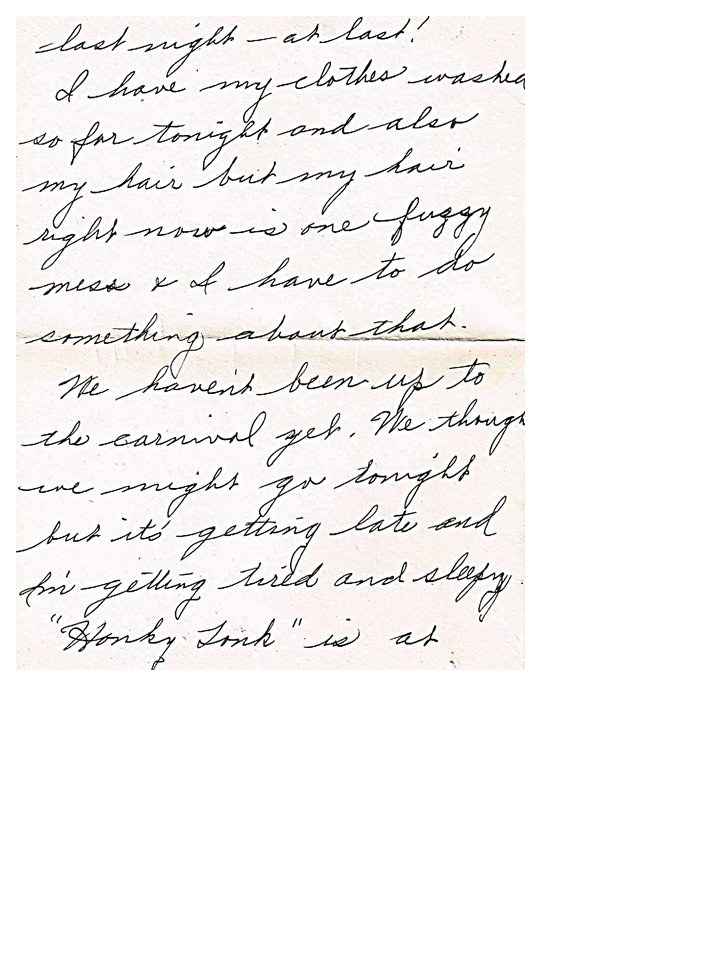 last night - at last!
I have my clothes washed
so far tonight and also
my hair but my hair
right now is one fuzzy
mess & I have to do
something about that.
We haven't been up to
the carnival yet. We though
we might go tonight
but it's getting late and
I'm getting tired and sleepy.
"Honky Tonk" is at